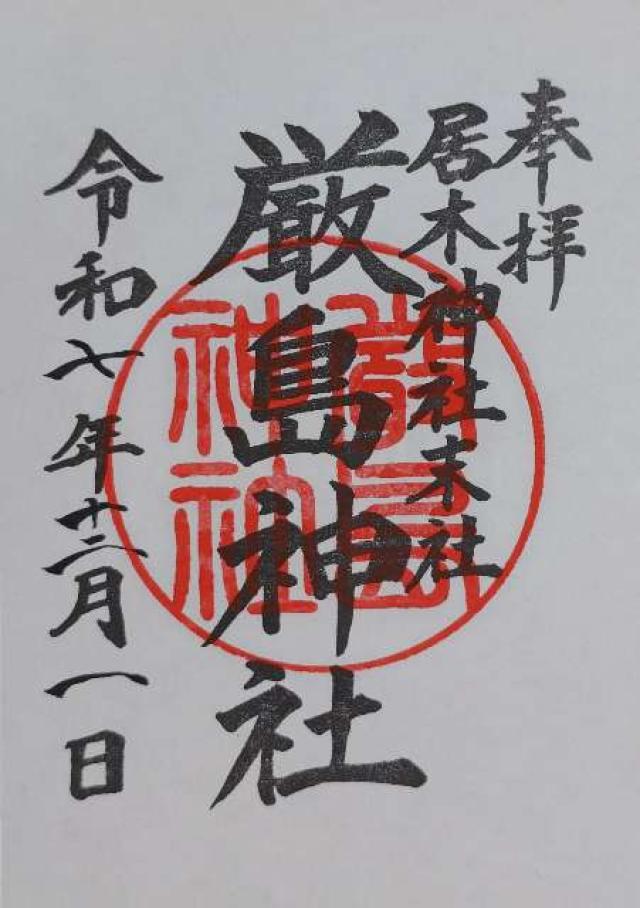 奉拝
居木神社末社
厳島神社
厳島神社
令和七年十二月一日